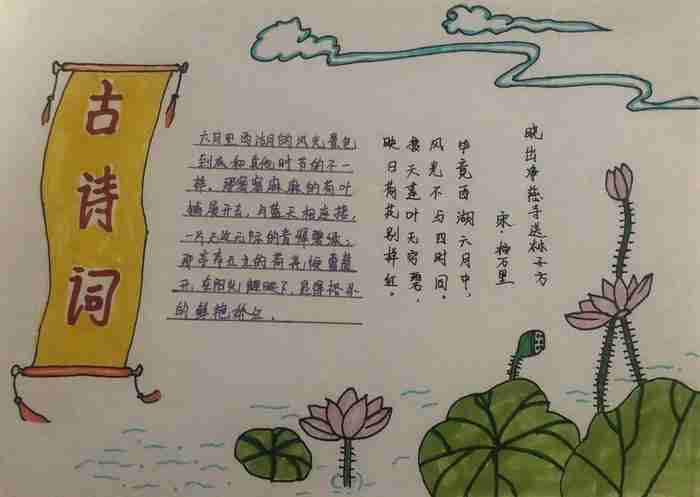 古诗词
六月里西湖的风光景色
到底和其他时节的不一
样。那密密麻麻的荷叶
铺展开去,与蓝天相连接,
一片无边无际的青翠碧绿;
那亭亭玉立的荷花绽蕾盛
开,在阳光辉映下,显得格外
的鲜艳娇红。
晓出净慈寺送林子方
宋·杨万里
毕竟西湖六月中,
风光不与四时同。
接天莲叶无穷碧,
映日荷花别样红。